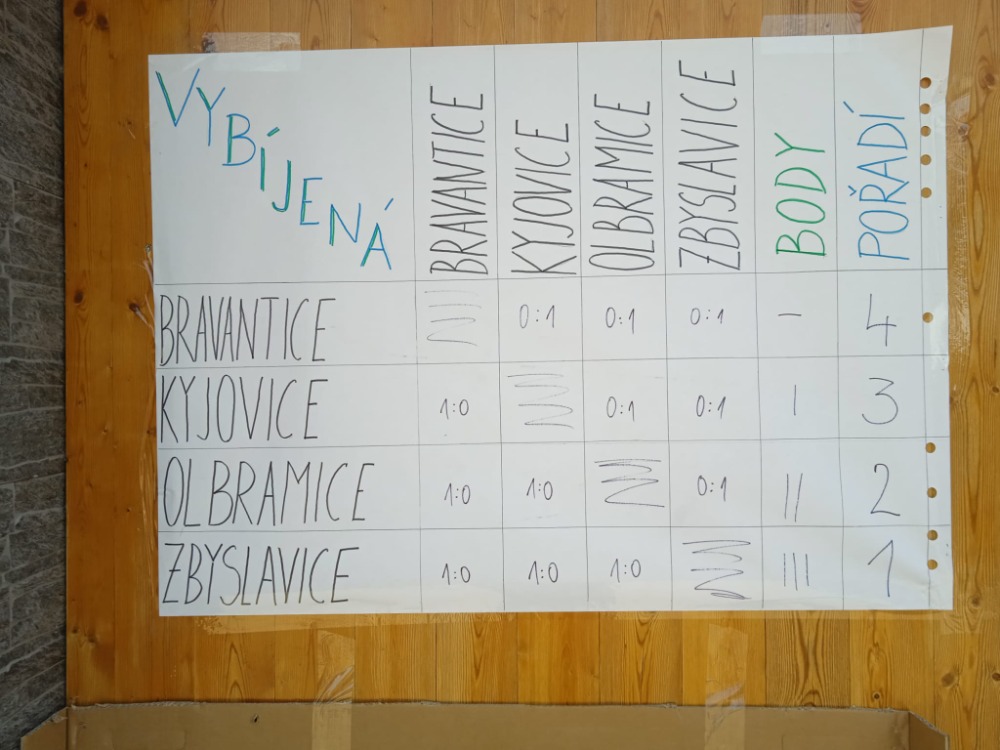 VYBÍJENÁ BRAVANTICE KYJOVICE OLBRAMICE ZBYSLAVICE BODY POŘADÍ
BRAVANTICE 0:1 0:1 0:1 – 4
KYJOVICE 1:0 0:1 0:1 I 3
OLBRAMICE 1:0 1:0 0:1 II 2
ZBYSLAVICE 1:0 1:0 1:0 III 1